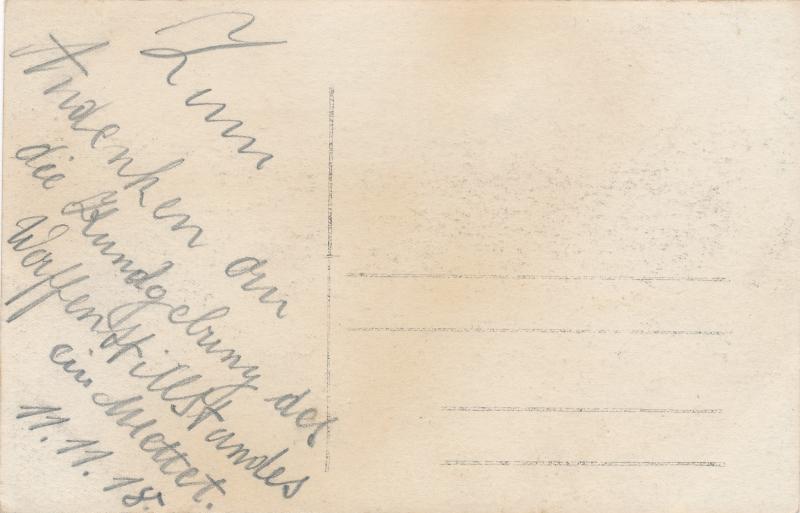 Zum
Andenken an
die Kundgebung des
Waffenstillstandes
in Mettet.
11.11.18.